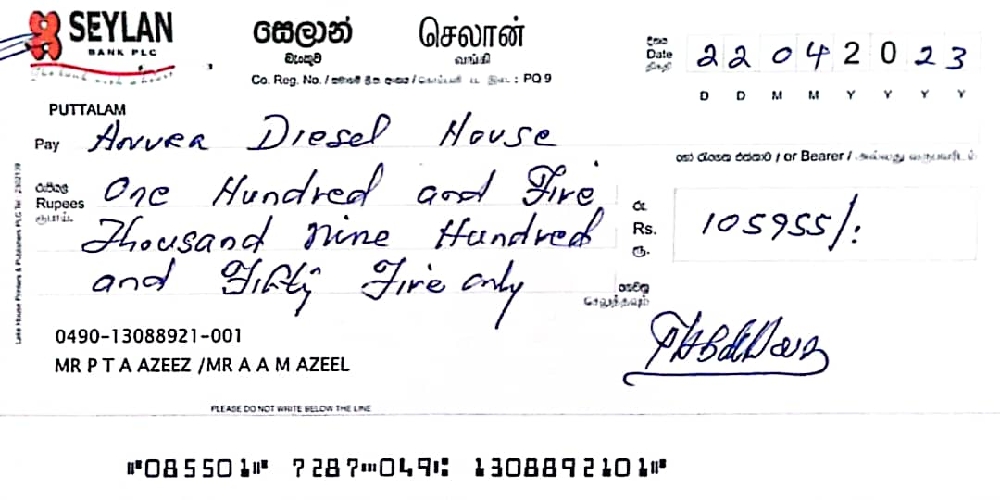 SEYLAN
BANK PLC
සෙලාන්
බැංකුව
செலான்
வங்கி
Co. Reg. No. / : PQ 9
දිනය
Date
திகதி
22042023
D D M M Y Y Y Y
PUTTALAM
Pay Anver Diesel House
හෝ රැගෙන එන්නාට / or Bearer / அல்லது
රුපියල්
Rupees
ரூபாய்
One Hundred and Five
Thousand Nine Hundred
and Fifty Five only
රු.
Rs.
ரூ.
105955/:
ගෙවනු
செலுத்தவும்
0490-13088921-001
MR P T A AZEEZ /MR A A M AZEEL
PLEASE DO NOT WRITE BELOW THE LINE
⑈085501⑈ 7287⑉049⑆ 1308892101⑈